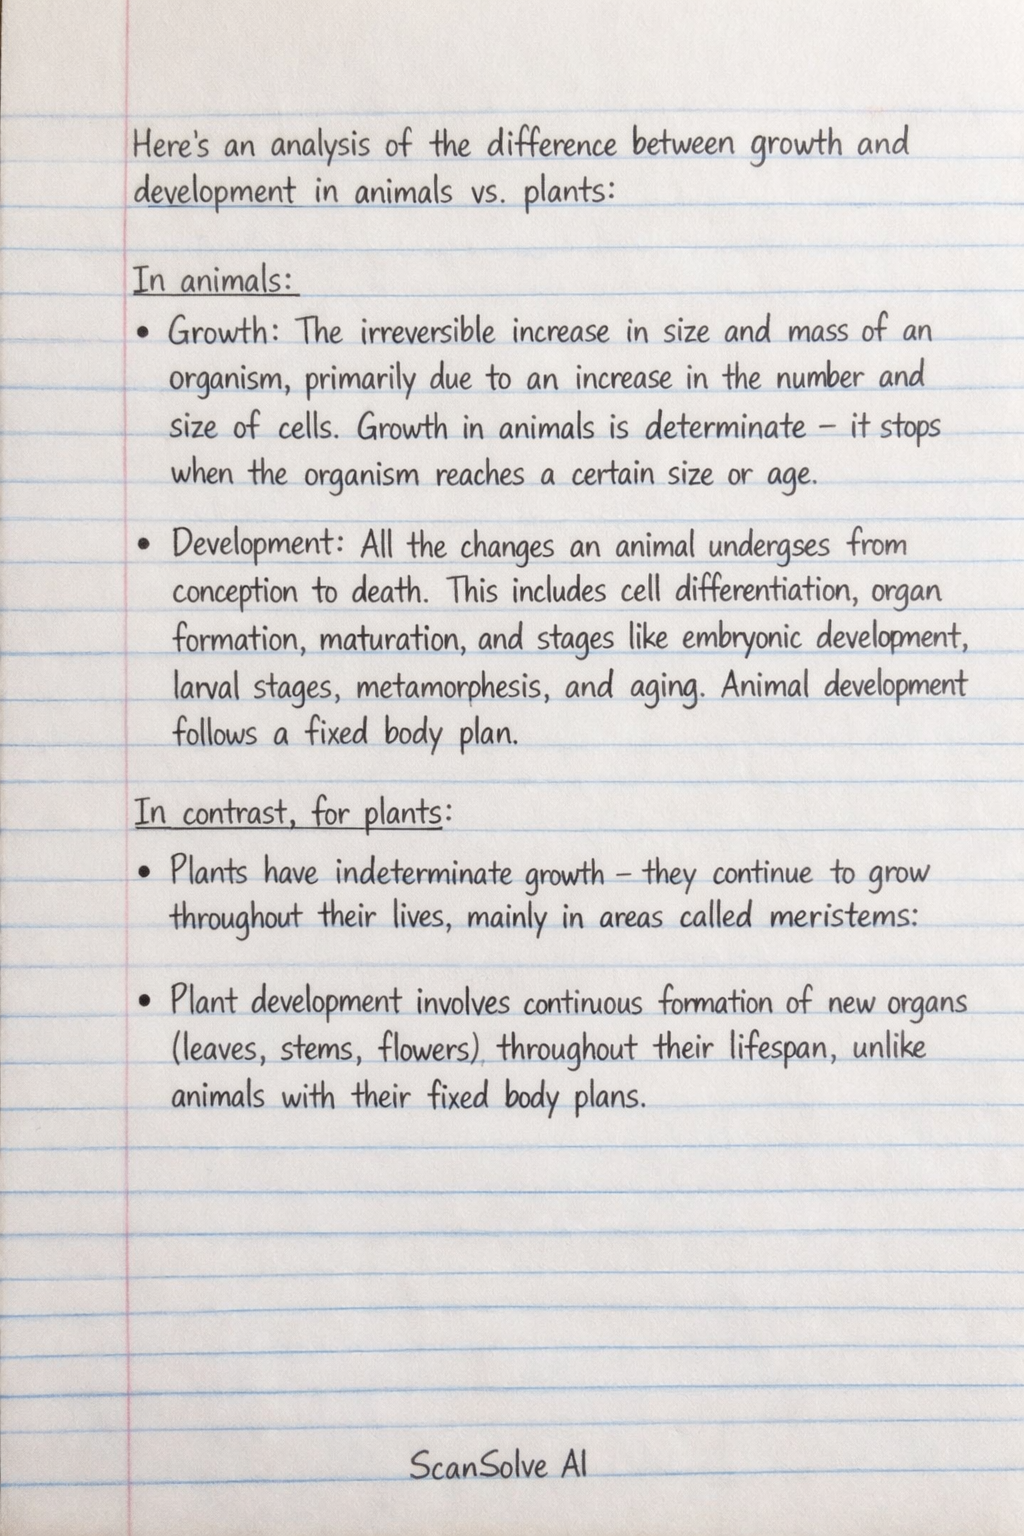 Here's an analysis of the difference between growth and
development in animals vs. plants:
In animals:
• Growth: The irreversible increase in size and mass of an
organism, primarily due to an increase in the number and
size of cells. Growth in animals is determinate – it stops
when the organism reaches a certain size or age.
• Development: All the changes an animal undergses from
conception to death. This includes cell differentiation, organ
formation, maturation, and stages like embryonic development,
larval stages, metamorphesis, and aging. Animal development
follows a fixed body plan.
In contrast, for plants:
• Plants have indeterminate growth – they continue to grow
throughout their lives, mainly in areas called meristems:
• Plant development involves continuous formation of new organs
(leaves, stems, flowers), throughout their lifespan, unlike
animals with their fixed body plans.
ScanSolve AI